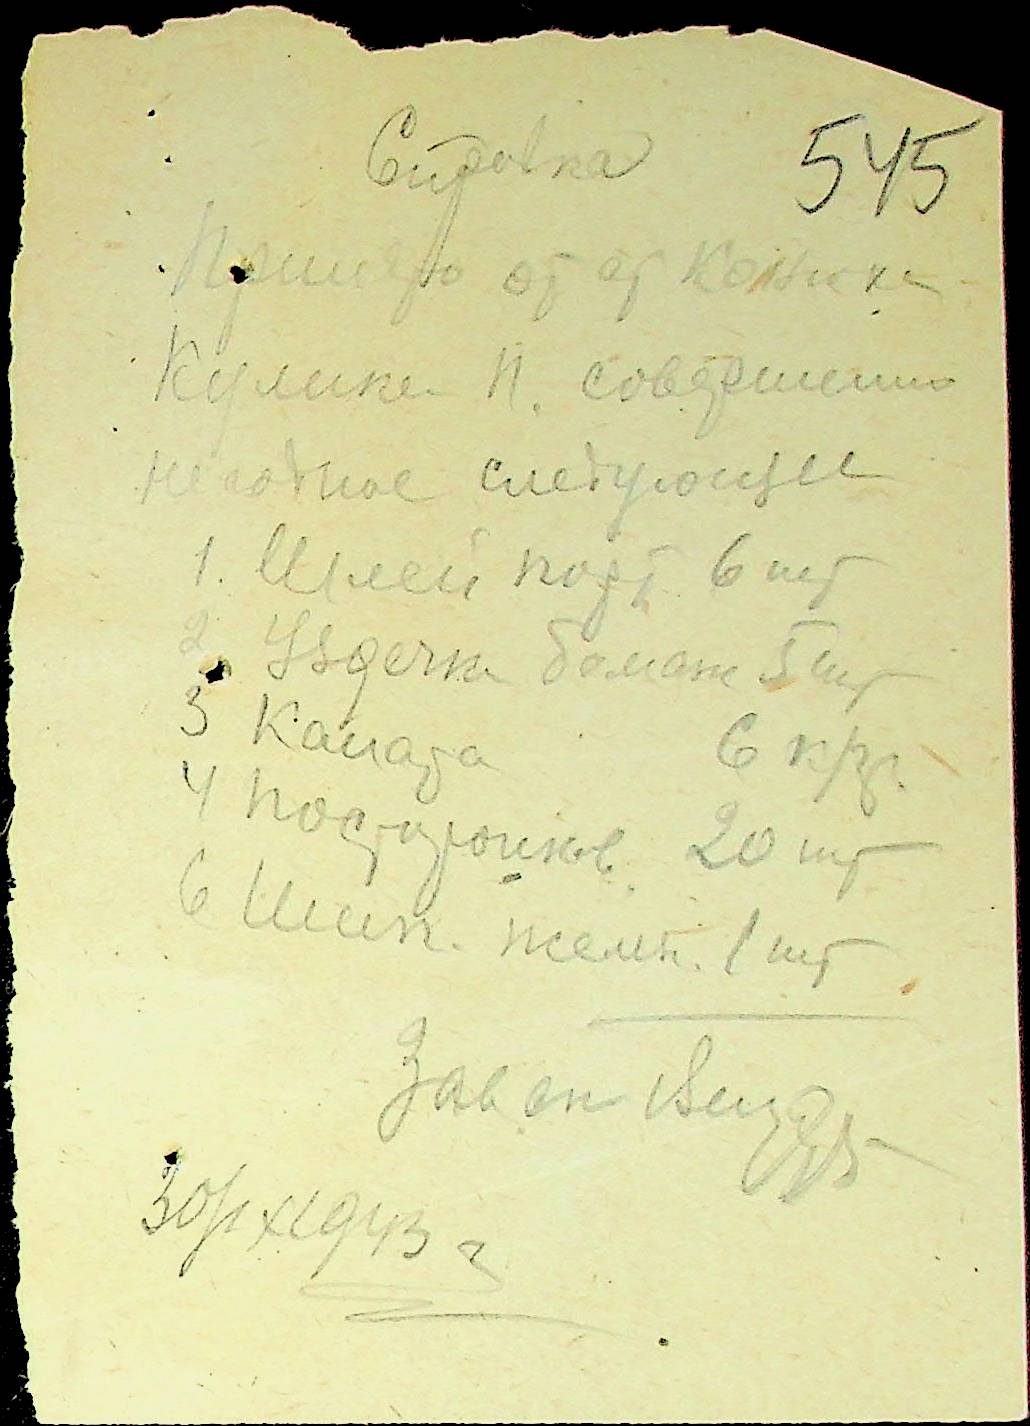 Справка 545
Принято от от Конюха
Кулика П. совершенно
негодное следующее
1. Шлей 6 шт
2. Уздечка 5 шт
3 Каната 6 кгр.
4 посторонков 20 шт
6 1 шт
Зав.
30/XI 943 г